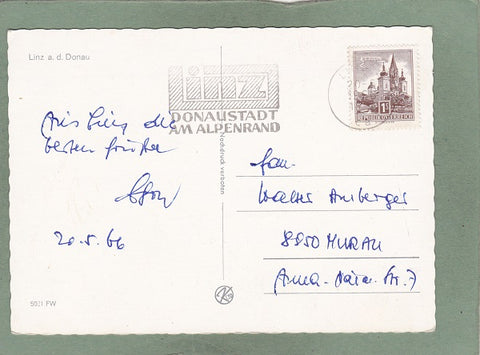 Linz a. d. Donau
Linz
DONAUSTADT
AM ALPENRAND
REPUBLIK ÖSTERREICH
Aus Linz die
besten Grüße
20.5.66
Fam.
Walter
8850 MURAU
Anna-
Str. 7
Nachdruck verboten
50/1 FW